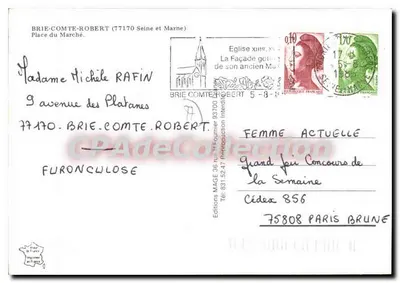 BRIE-COMTE-ROBERT (77170 Seine et Marne)
Place du Marché.
Eglise XIIIe,
La Façade
de son ancien
BRIE COMTE ROBERT 5-8-
0,10
Madame Michèle RAFIN
9 avenue des Platanes
77170-BRIE.COMTE.ROBERT.
FURONCULOSE
Editions MAGE
Tél: 831.52.47 Reproduction Interdite
FEMME ACTUELLE
Grand Jeu Concours de
la Semaine
Cédex 856
75808 PARIS BRUNE
CPADeCollection